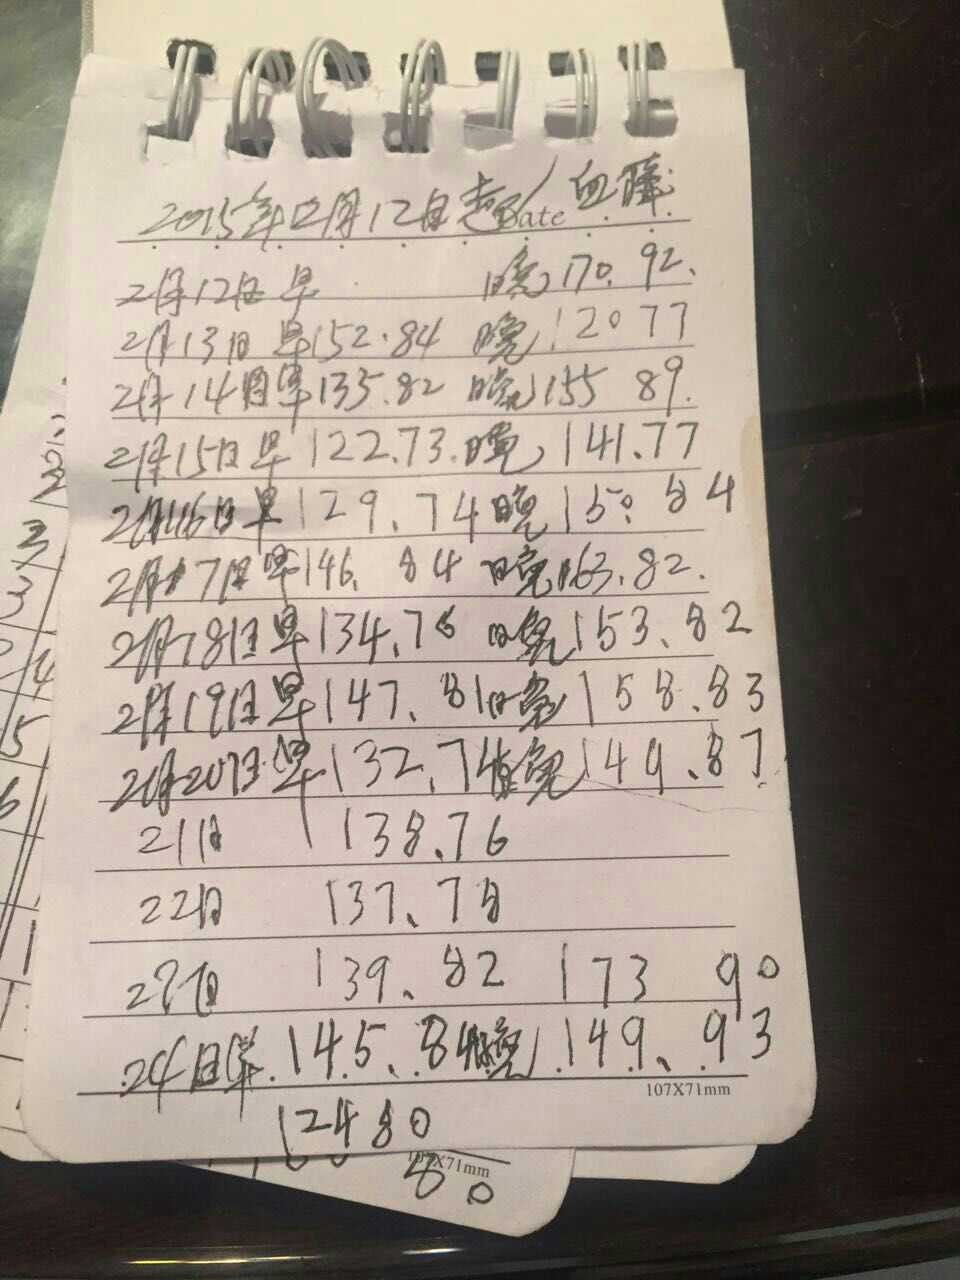 2015年2月12日起 Date 血障
2月12日早 晚170.92.
2月13日早152.84 晚12077
2月14日早135.82 晚155 89.
2月15日早122.73.晚141.77
2月16日早129.74晚150.84
2月17日早146.84 晚163.82.
2月18日早134.76 晚153.82
2月19日早147.81晚158.83
2月20日早132.74晚149.87
21日 138.76
22日 137.78
23日 139.82 173 90
24日早.145.84晚149.93
107X71mm
12480
107X71mm
80